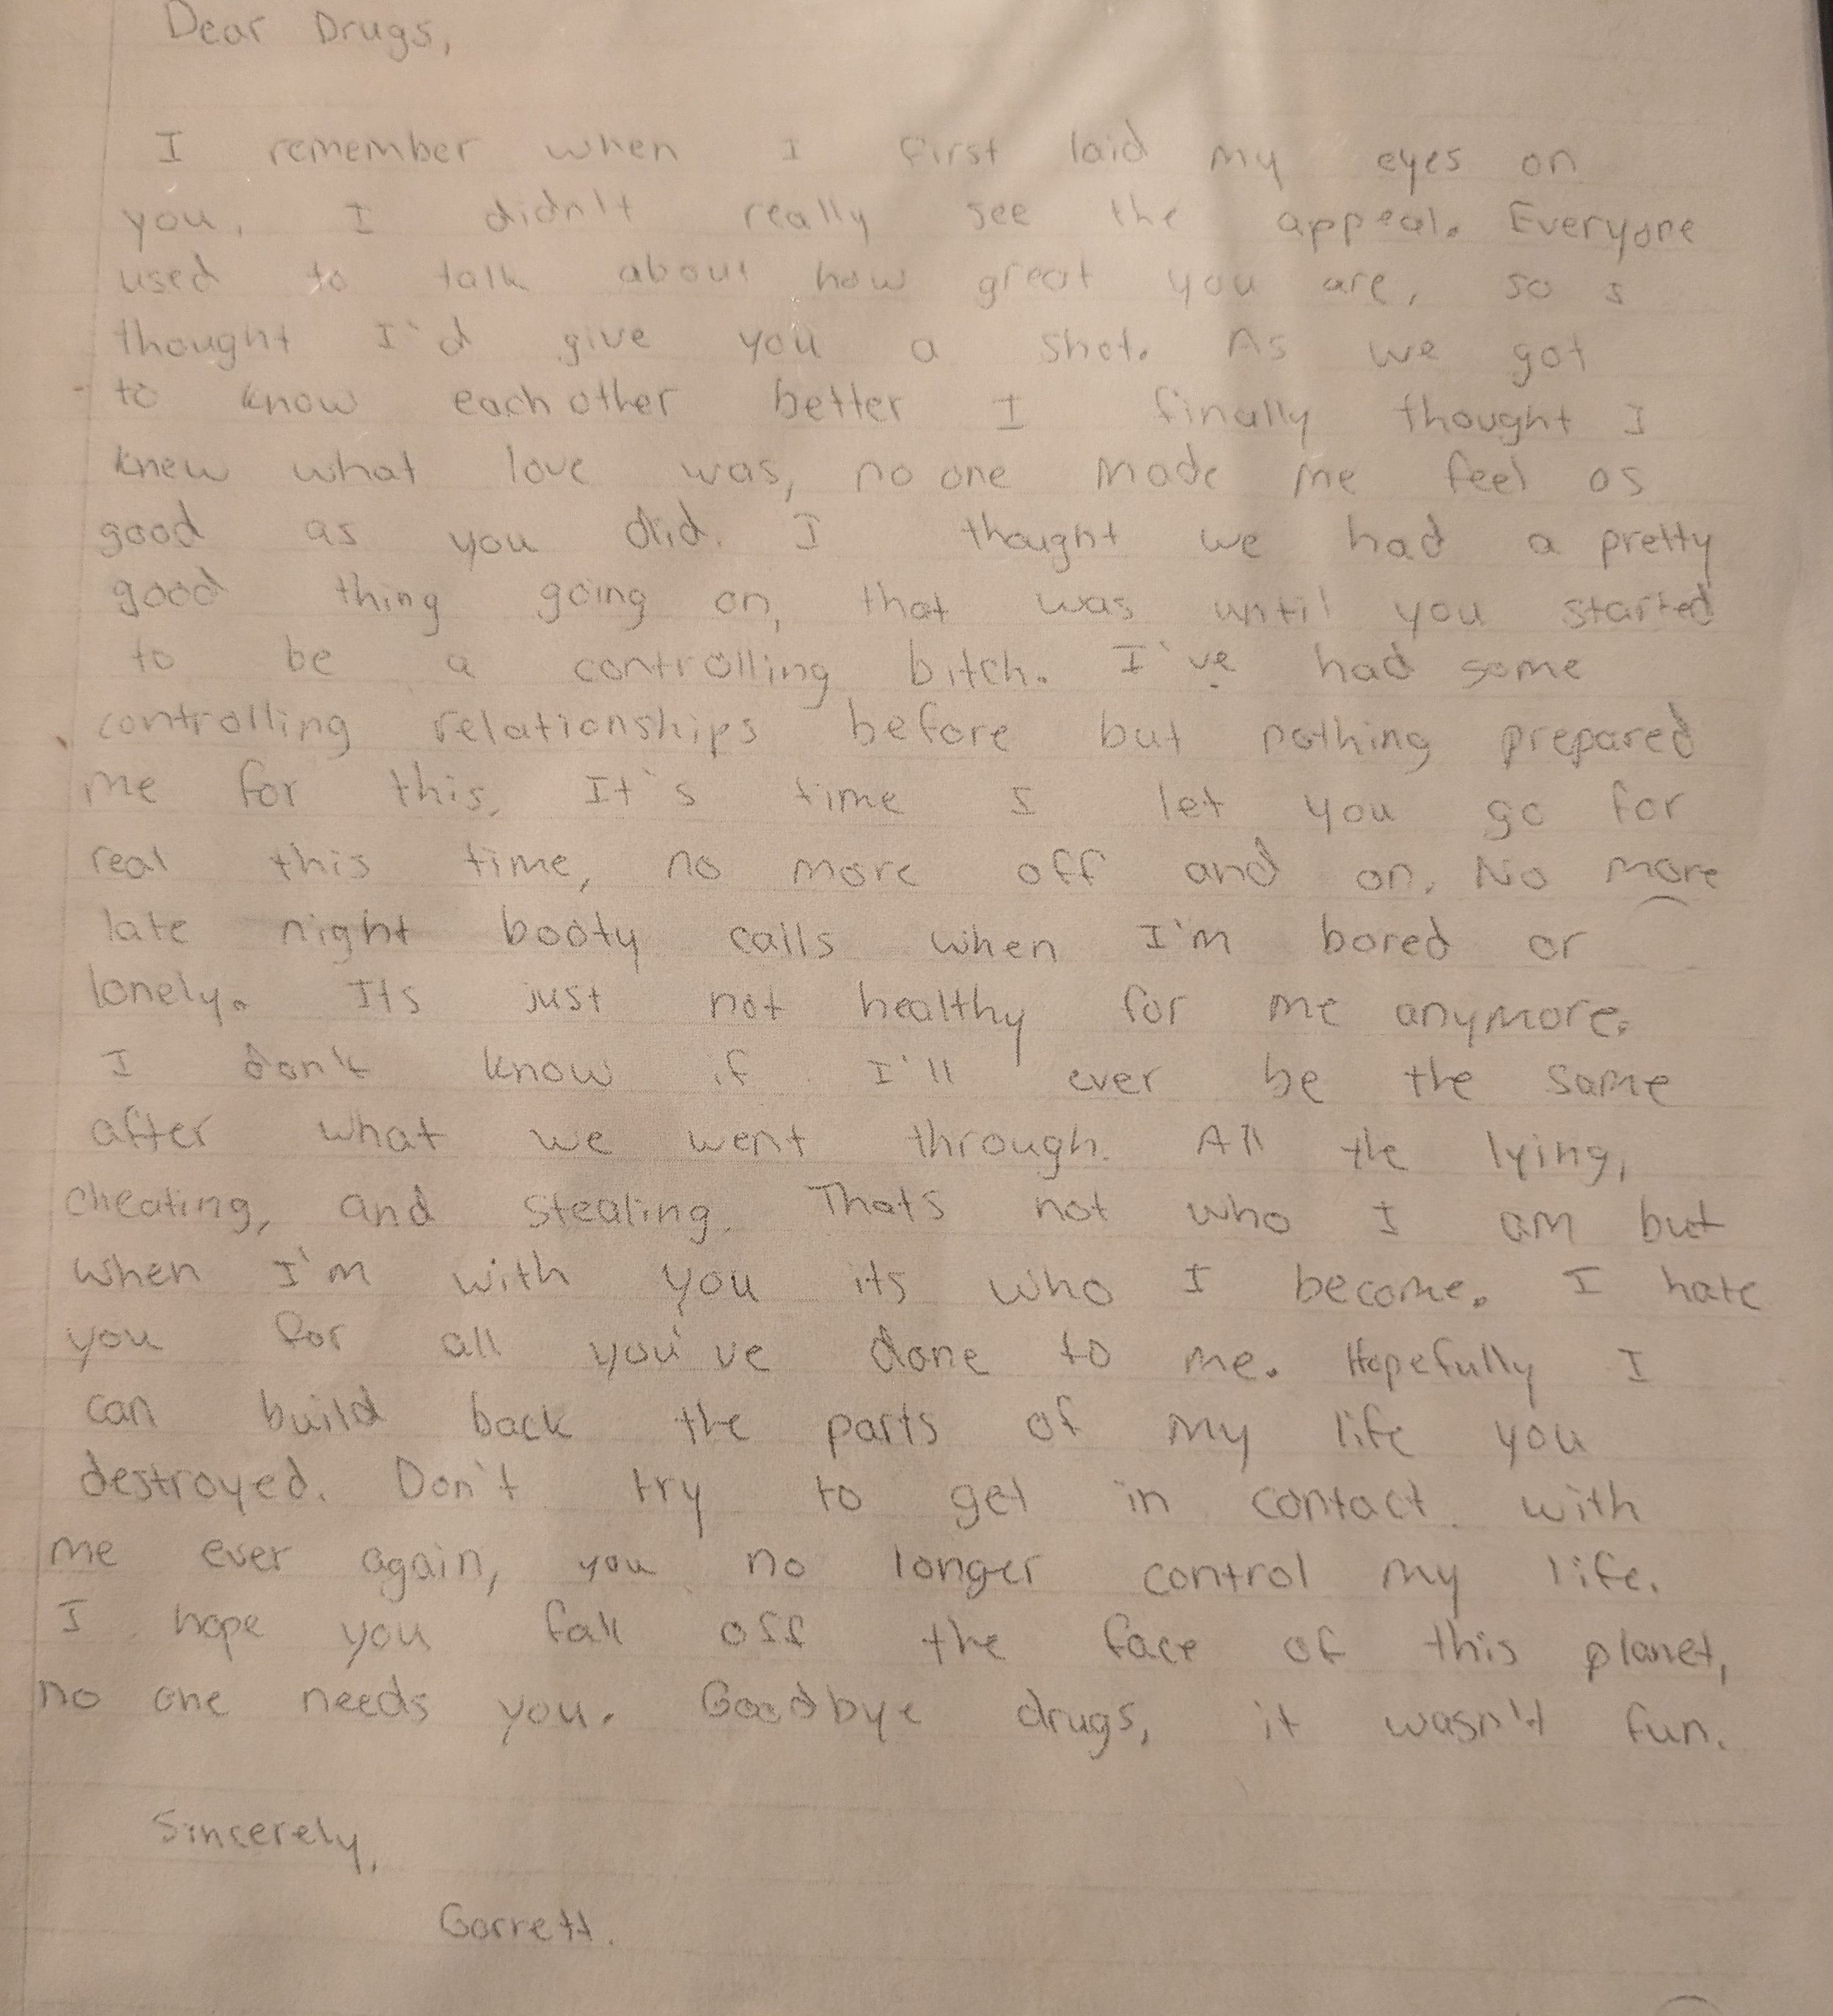 Dear Drugs,
I remember when I first laid my eyes on
you, I didn't really see the appeal. Everyone
used to talk about how great you are, so I
thought I'd give you a shot. As we got
to know each other better I finally thought I
knew what love was, no one made me feel as
good as you did. I thought we had a pretty
good thing going on, that was until you started
to be a controlling bitch. I've had some
controlling relationships before but nothing prepared
me for this. It's time I let you go for
real this time, no more off and on. No more
late night booty calls when I'm bored or
lonely. Its just not healthy for me anymore.
I don't know if I'll ever be the same
after what we went through. All the lying,
cheating, and stealing. Thats not who I am but
when I'm with you its who I become. I hate
you for all you've done to me. Hopefully I
can build back the parts of my life you
destroyed. Don't try to get in contact with
me ever again, you no longer control my life.
I hope you fall off the face of this planet,
no one needs you. Goodbye drugs, it wasn't fun.
Sincerely,
Garrett.